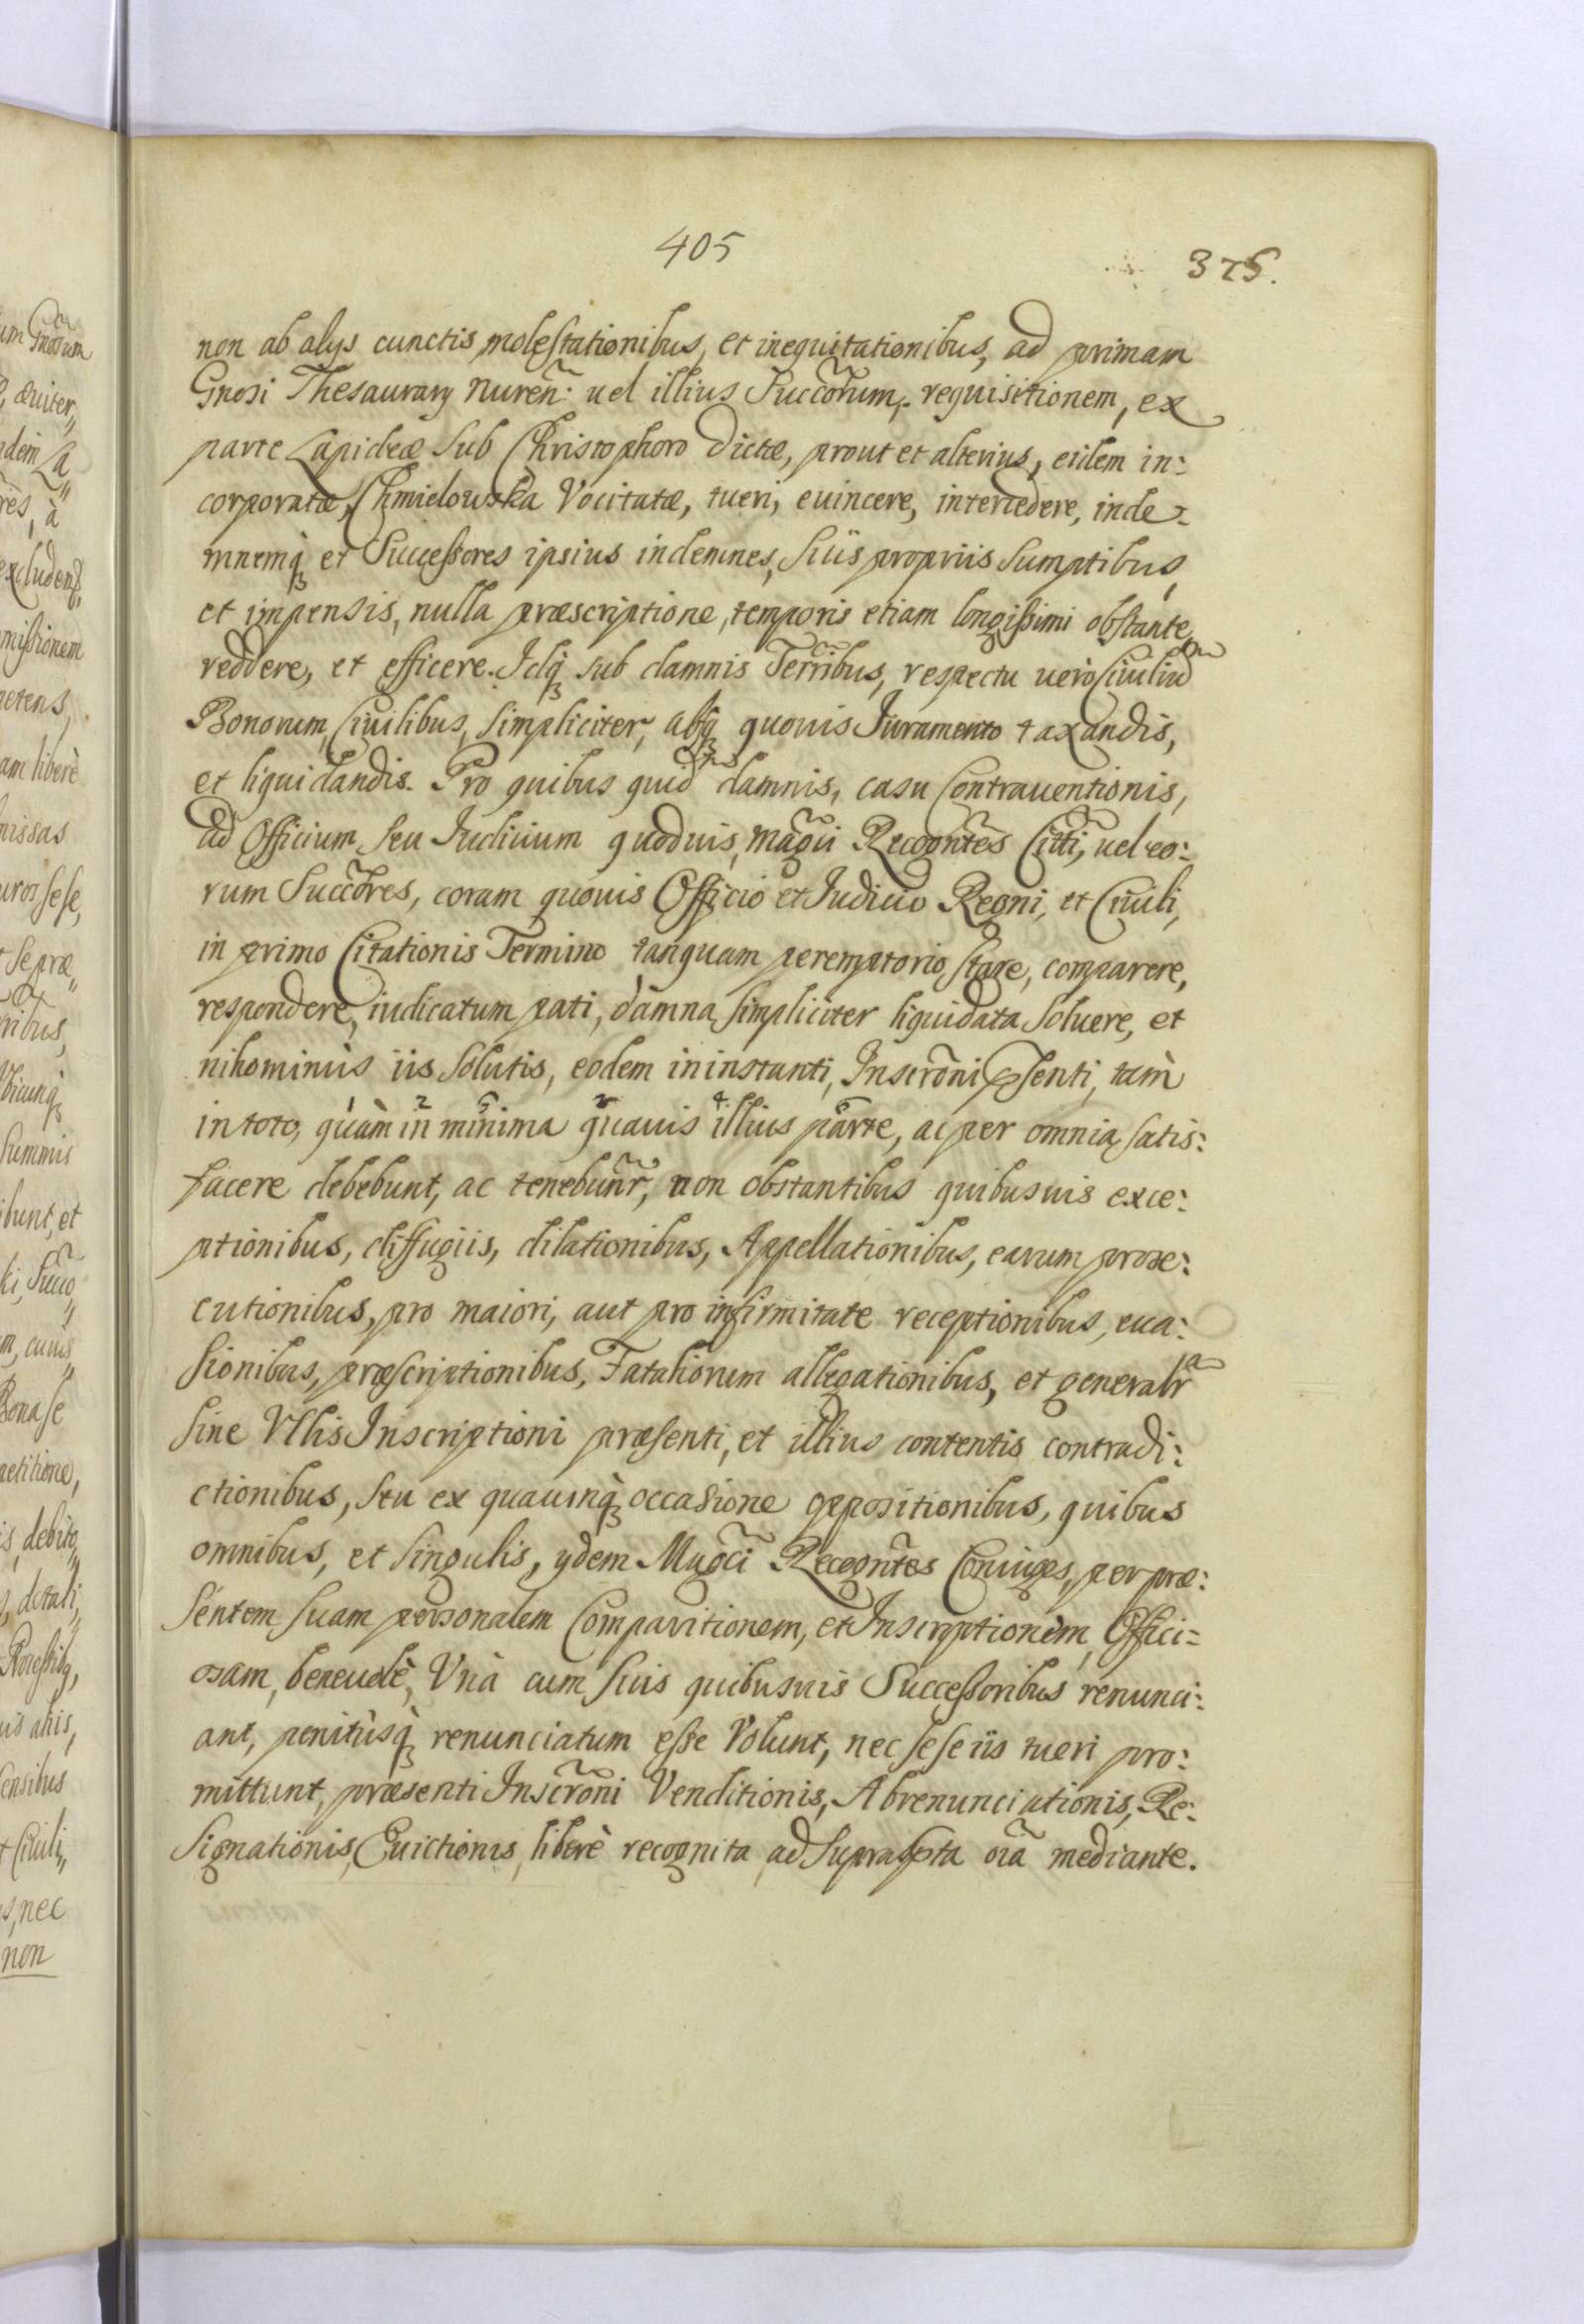 405
375.
non ab alys cunctis molestationibus, et inequitationibus, ad primam
Gnosi Thesaurary Nuren̄: uel illius Succõrum, requisitionem, ex
parte Lapideæ Sub Christophoro dictæ, prout et alterius, eidem in:
corporatæ, Chmielowska Vocitatæ, tueri, euincere, intercedere, inde:
mnemq̀ et Successores ipsius indemnes, Suis propriis Sumptibus
et impensis, nulla præscriptione, temporis etiam longissimi obstante
reddere, et efficere. Idq̀ sub damnis Terr̃ibus, respectu uerò Ciuiliũ
Bonorum, Ciuilibus, Simpliciter, absq̀ quouis Juramento taxandis,
et liquidandis. Pro quibus quid̃ damnis, casu Contrauentionis,
ad Officium Seu Judicium quoduis, Magci Recogntes Citti, uel eo:
rum Succõres, coram quouis Officio et Judicio Regni, et Ciuili,
in primo Citationis Termino tanquam peremptorio, stare, comparere,
respondere, iudicatum pati, damna Simpliciter liquidata Soluere, et
nihominùs iis Solutis, eodem in instanti, Inscrõni psenti, tàm
in toto, quàm in minima quauis illius parte, ac per omnia satis:
1 2 5 3 4 6
facere debebunt, ac tenebunr̃, non obstantibus quibusuis exce:
ptionibus, diffugiis, dilationibus, Appellationibus, earum prose:
cutionibus, pro maiori, aut pro infirmitate receptionibus, eua:
sionibus, præscriptionibus, Fatalionum allegationibus, et generalr̃
Sine Vllis Inscriptioni præsenti, et illius contentis contradi:
ctionibus, Seu ex quacunq̀ occasione oppositionibus, quibus
omnibus, et Singulis, ydem Mugci Recogntes Coniuges, per præ:
Sentem Suam personalem Comparitionem, et Inscriptionèm Offici=
osam, beneuolè, Vnà cum Suis quibusuis Successoribus renunci:
ant, penitùsq̀ renunciatum esse Volunt, nec sese iis tueri pro:
mittunt, præsenti Inscrõni Venditionis, Abrenunciationis, Re:
Signationis, Euictionis, liberè recognita ad Suprasρta oĩa mediante.